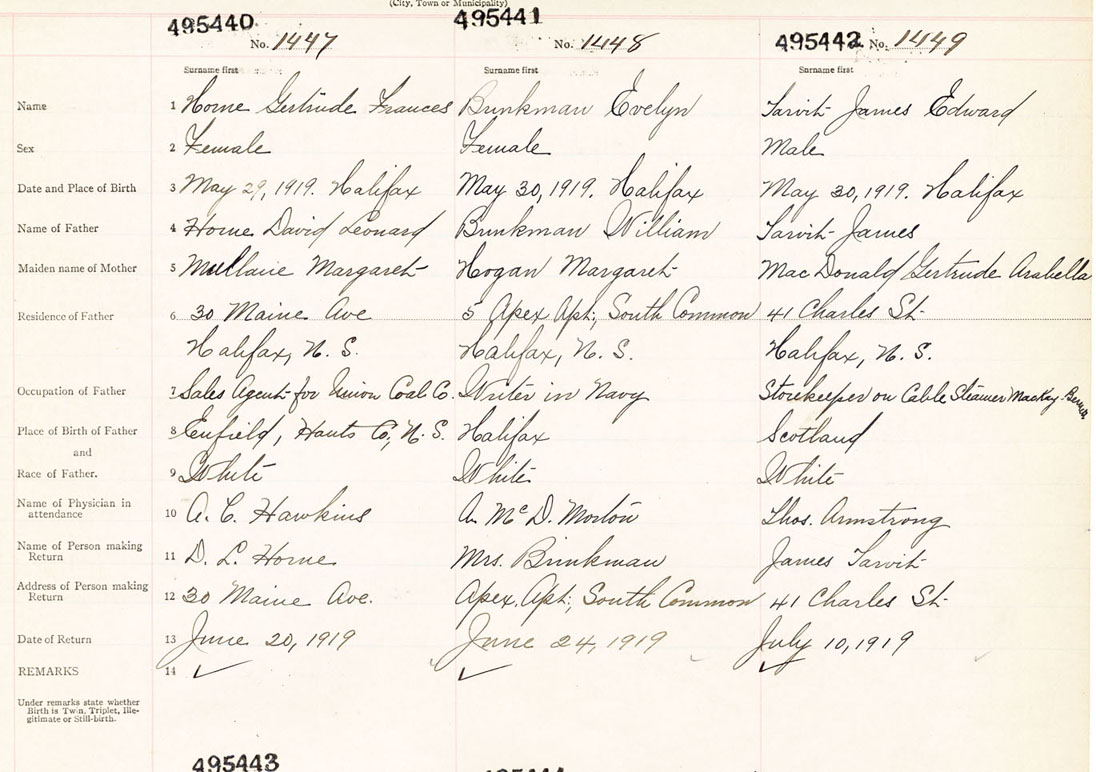 (City, Town or Municipality)
495440 495441
No. 1447 No. 1448 495442 No. 1449
Surname first Surname first Surname first
Name 1 Horne Gertrude Frances Brinkman Evelyn Tarvit James Edward
Sex 2 Female Female Male
Date and Place of Birth 3 May 29, 1919. Halifax May 30, 1919. Halifax May 30, 1919. Halifax
Name of Father 4 Horne David Leonard Brinkman William Tarvit James
Maiden name of Mother 5 Margaret Hogan Margaret MacDonald Gertrude Arabella
Residence of Father 6 30 Maine Ave 5 Apex Apt; South Common 41 Charles St
Halifax, N. S. Halifax, N. S. Halifax, N. S.
Occupation of Father 7 Sales Agent for Union Coal Co. Writer in Navy Storekeeper on Cable Steamer MacKay-Bennett
Place of Birth of Father 8 Enfield, Hants Co, N. S. Halifax Scotland
and
Race of Father. 9 White White White
Name of Physician in
attendance 10 A. C. Hawkins A. McD. Morton Thos. Armstrong
Name of Person making
Return 11 D. L. Horne Mrs. Brinkman James Tarvit
Address of Person making
Return 12 30 Maine Ave. Apex. Apt; South Common 41 Charles St
Date of Return 13 June 20, 1919 June 24, 1919 July 10, 1919
REMARKS 14 ✓ ✓ ✓
Under remarks state whether
Birth is Twin, Triplet, Ille-
gitimate or Still-birth.
495443